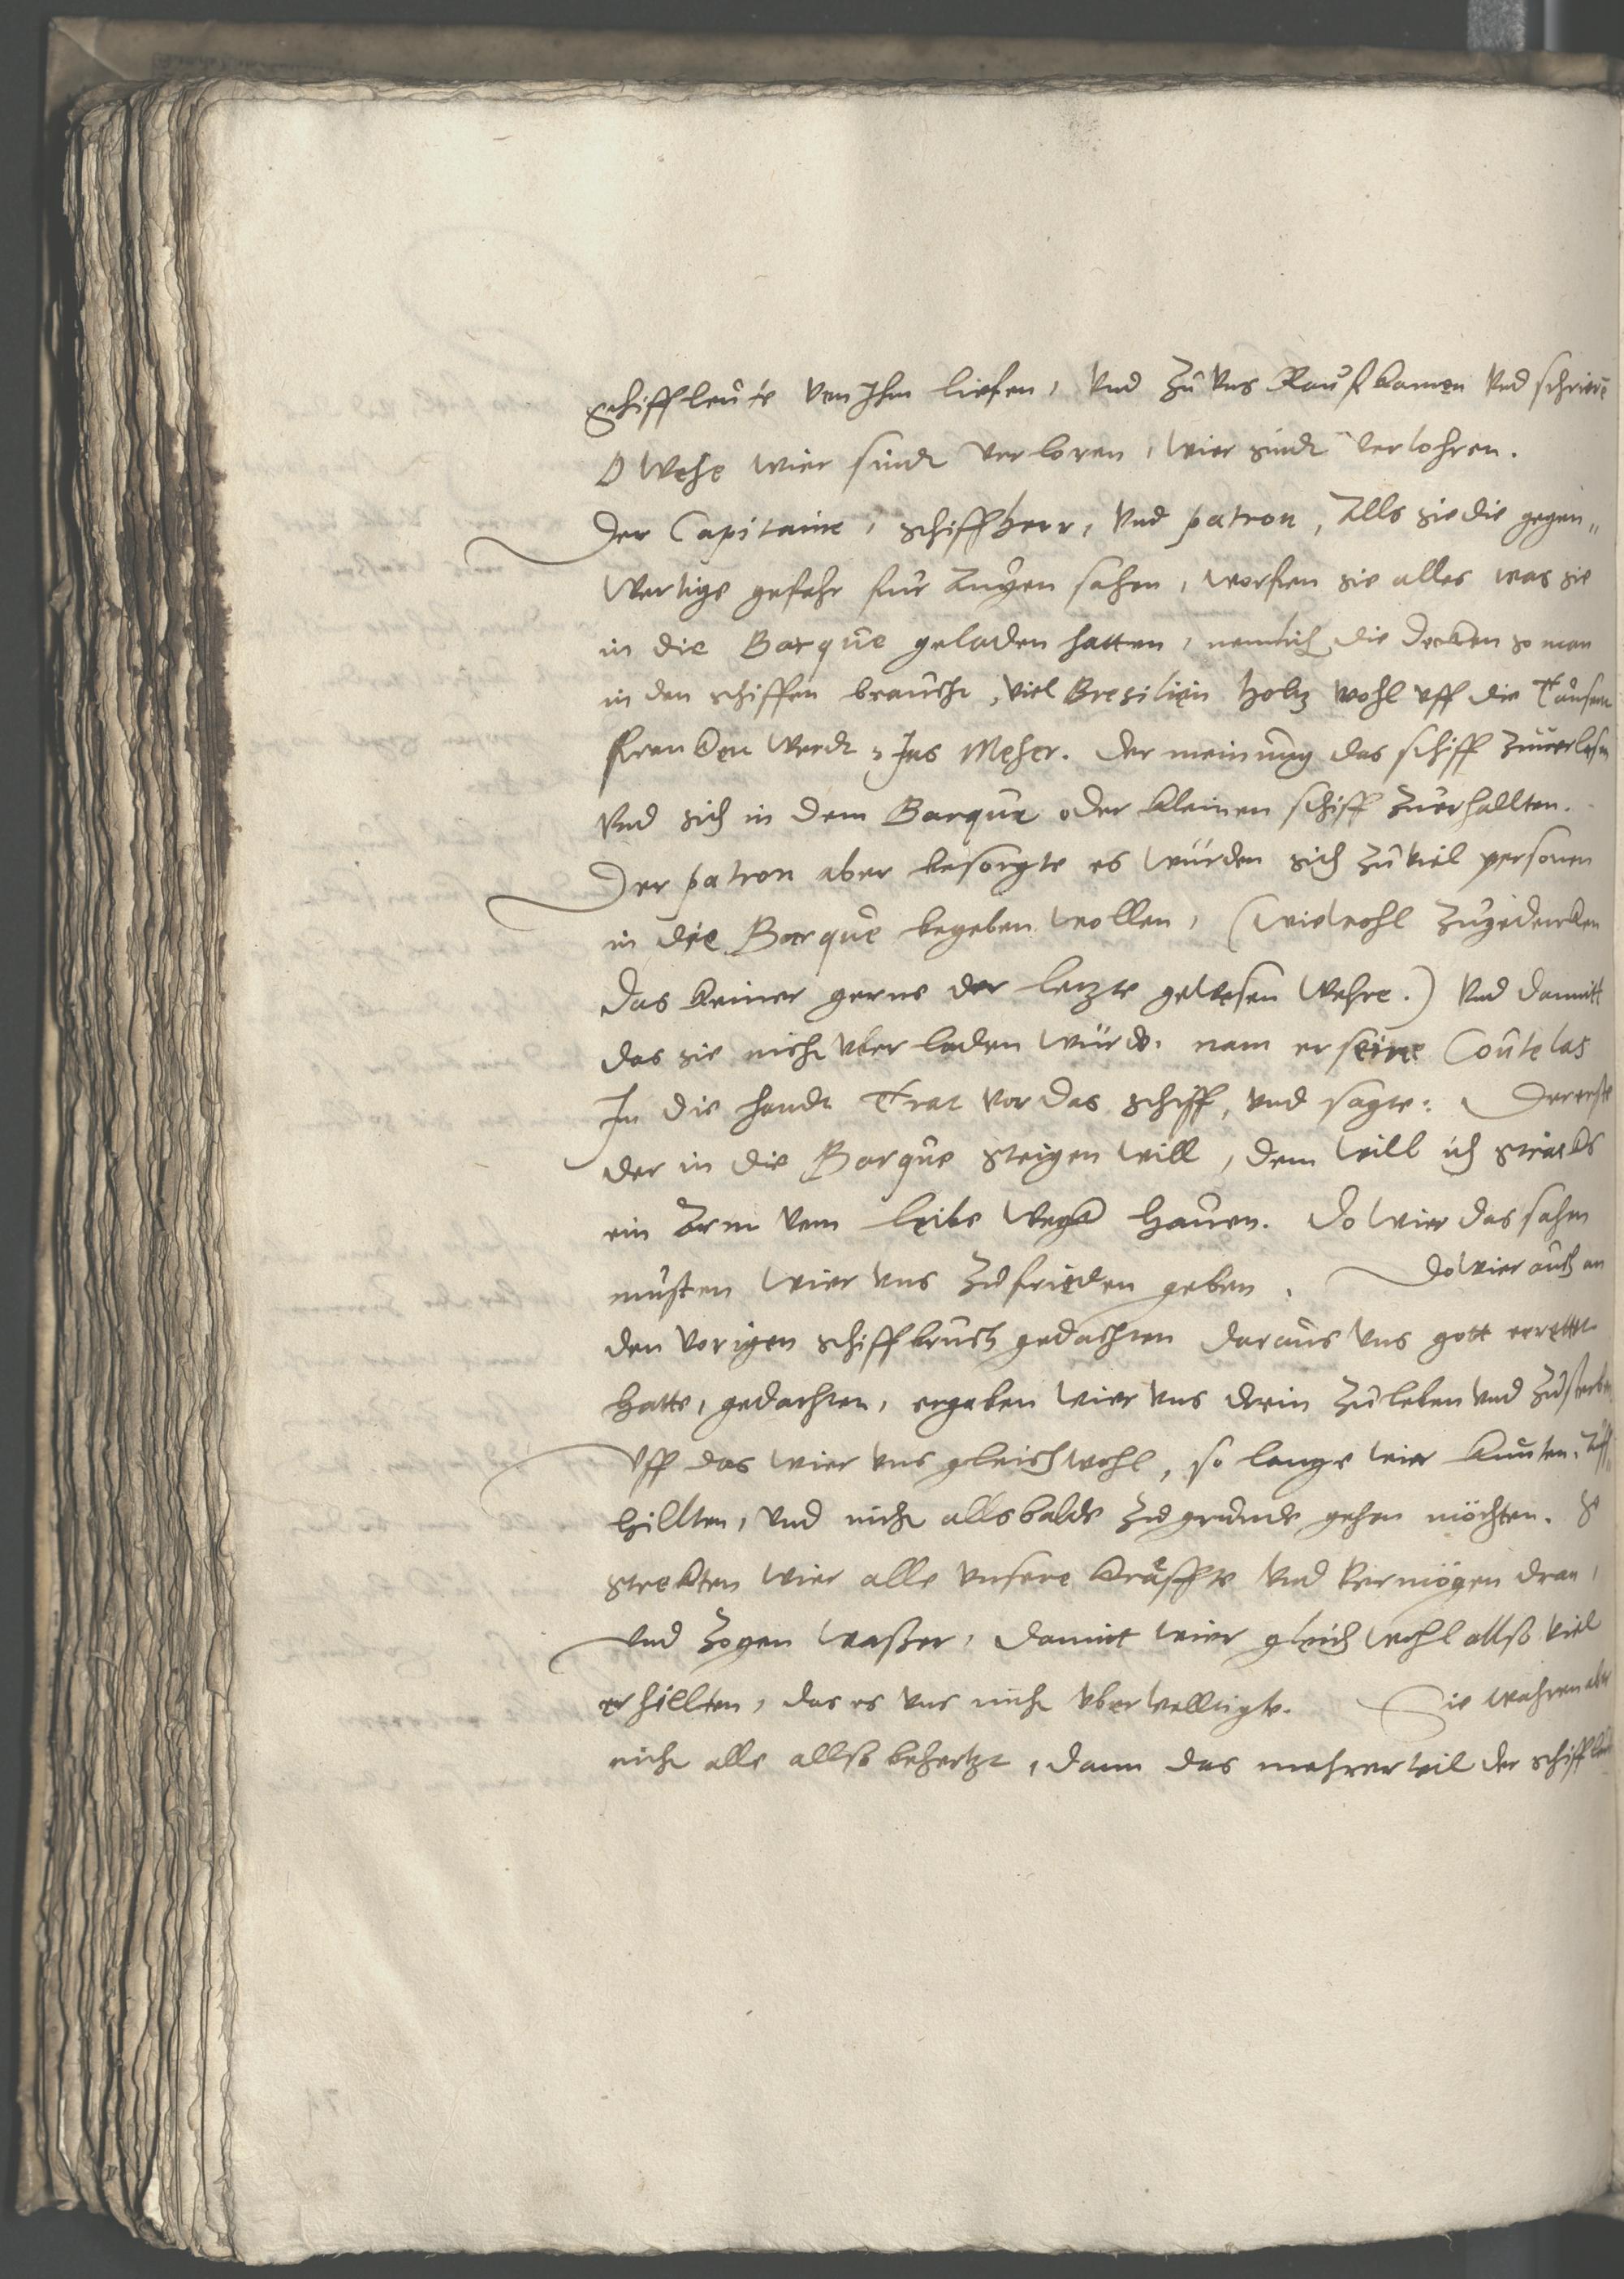 schiffleute von Ihm liefen, Vnd Zu Vns Rauß kamen Vnd schrieē
O Wehe wier sindt verloren, wier sindt verlohren.
Der Capitaine, schiffherr, Vnd patron, Alls sie die gegen„
Wertige gefahr fur Augen sahen, worfen sie alles was sie
in die Barque geladen hatten, nemlich die decken so man
in den schiffen braucht, Viel Bresilien holtz wohl vff die Tausent
francken Werdt, Ins Meher. Der meinung das schiff Zuuerlasen
Vnd sich in dem Barque oder kleinen schiff Zuerhallten.
Der patron aber besorgte es würden sich Zu Viel personen
in die Barque begeben wollen, (wiewohl Zugedencken
das keiner gerne der letzte gewesen Wehre.) Vnd damitt
das sie nicht vberladen würde. nam er seine Coutelas
In die handt Trat Vor das schiff, vnd sagte: Der erste
der in die Barque steigen will, dem will ich stracks
ein Arm Vom leibe Wegk hauen. Do wier das sahen
musten wier vns Zufrieden geben. Do wier auch an
den Vorigen schiffbruch gedachten daraus Vns gott errettet
hatte, gedachten, ergaben wier vns drein Zu leben vnd Zu sterben
Vff das wier vns gleichwohl, so lange wier kunten, Auff
hillten, Vnd nicht allsbalde Zu grunde gehen möchten. So
streckten wier alle vnsere kräffte Vnd Vermögen dran,
Vnd Zogen waßer, damit wier gleichwohl allso viel
erhillten, das es vns nicht vberwelltigte. Sie wahren aber
nicht alle allso behertzt, dann das mehrerteil der schiffleut